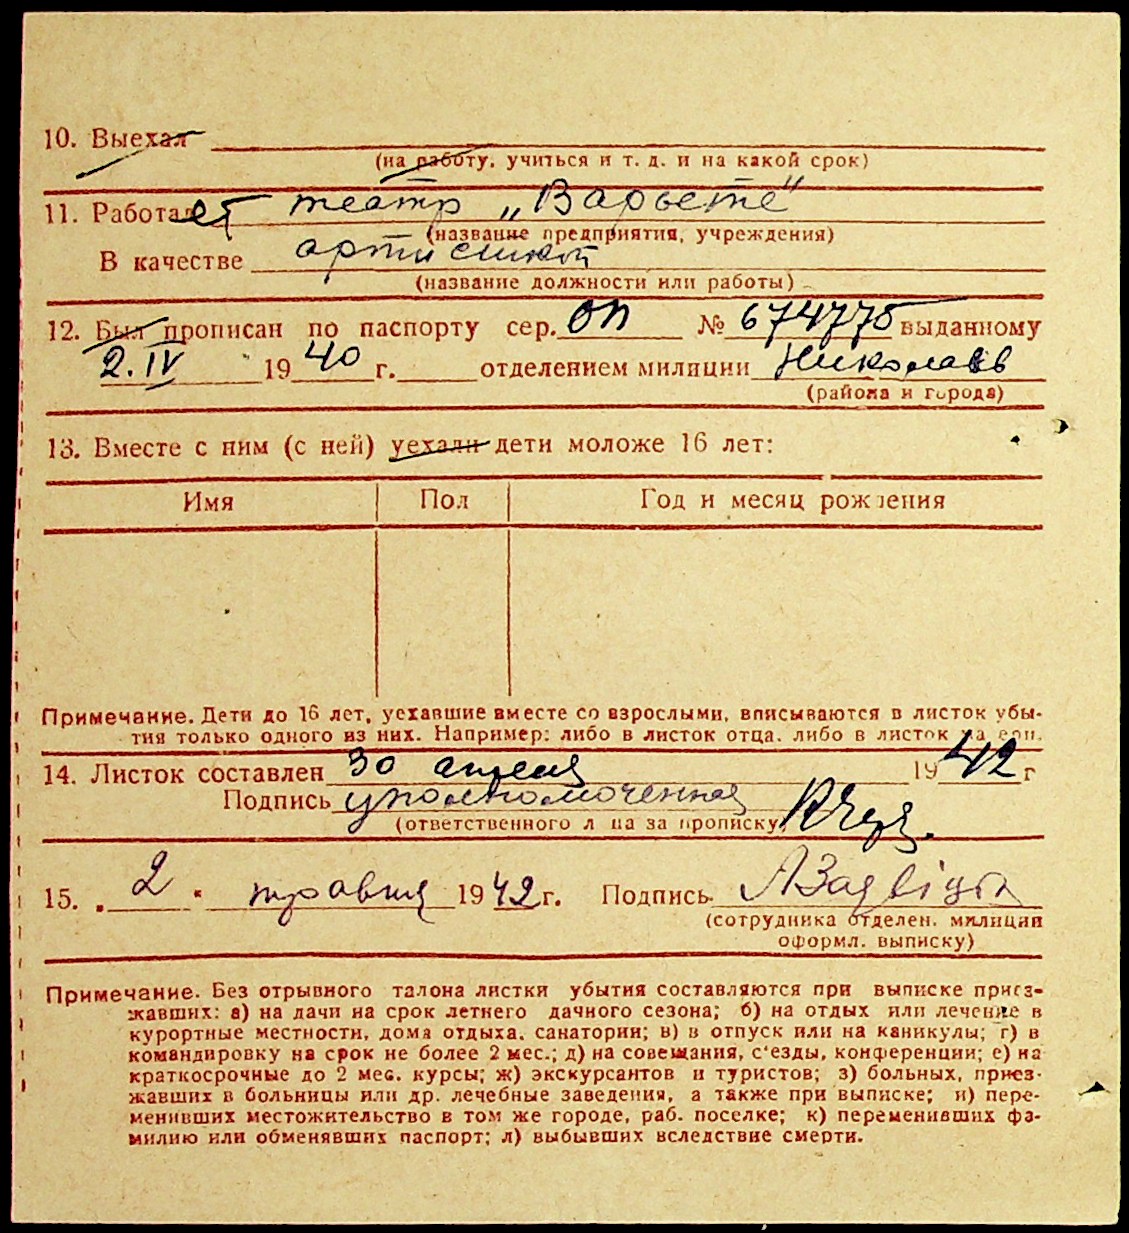 10. Выехал
(на работу, учиться и т. д. и на какой срок)
11. Работает театр „Варьете"
(название предприятия, учреждения)
В качестве артисткой
(название должности или работы)
12. Был прописан по паспорту сер. ОП № 674775 выданному
2.IV 1940 г. отделением милиции Николаев
(района и города)
13. Вместе с ним (с ней) уехали дети моложе 16 лет:
Имя Пол Год и месяц рождения
Примечание. Дети до 16 лет, уехавшие вместе со взрослыми, вписываются в листок убы-
тия только одного из них. Например: либо в листок отца, либо в листок
14. Листок составлен 30 апреля 1942 г
Подпись уполномоченная
(ответственного лица за прописку)
15. „2" травня 1942 г. Подпись
(сотрудника отделен. милиции
оформл. выписку)
Примечание. Без отрывного талона листки убытия составляются при выписке приез-
жавших: а) на дачи на срок летнего дачного сезона; б) на отдых или лечение в
курортные местности, дома отдыха, санатории; в) в отпуск или на каникулы; г) в
командировку на срок не более 2 мес.; д) на совещания, с'езды, конференции; е) на
краткосрочные до 2 мес. курсы; ж) экскурсантов и туристов; з) больных, приез-
жавших в больницы или др. лечебные заведения, а также при выписке; и) пере-
менивших местожительство в том же городе, раб. поселке; к) переменивших фа-
милию или обменявших паспорт; л) выбывших вследствие смерти.